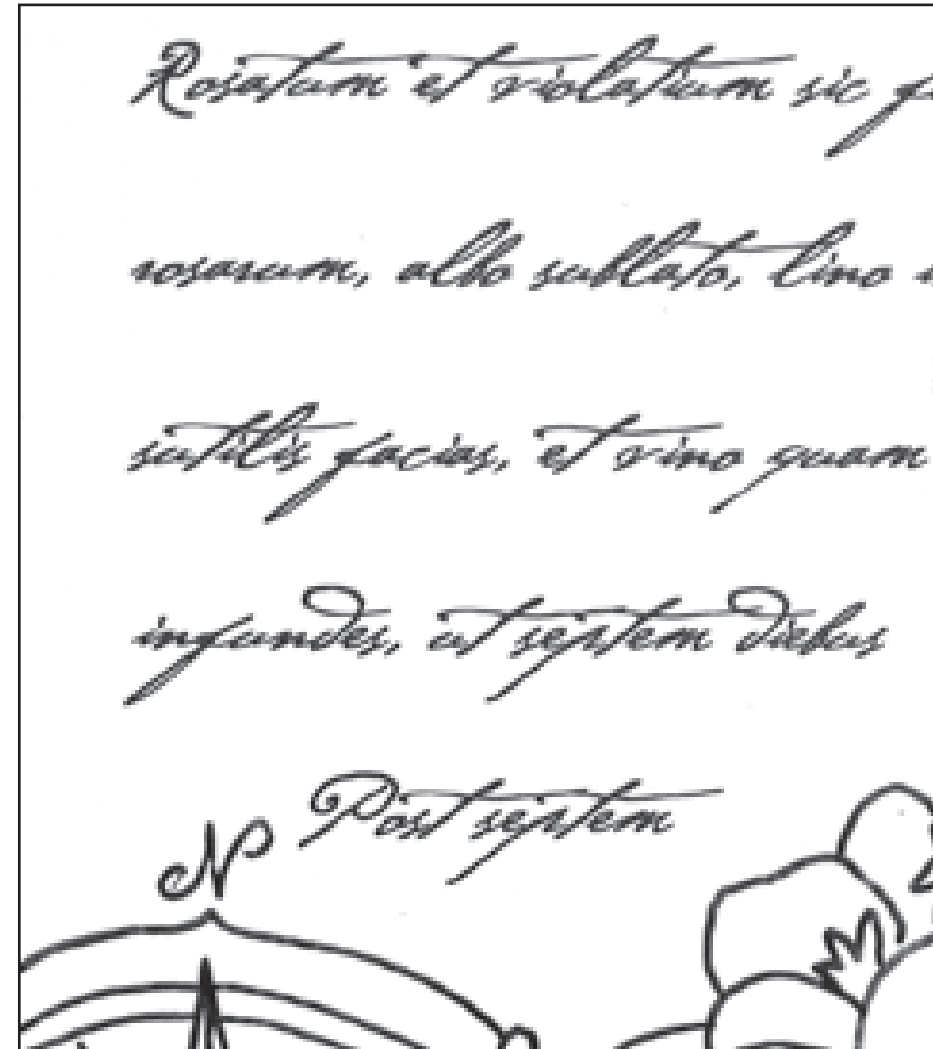 Rosatum et violatium sic f
rosarum, albo sublato, lino
sutilis facias, et vino quam
infundes, ut septem diebus
Post septem
N